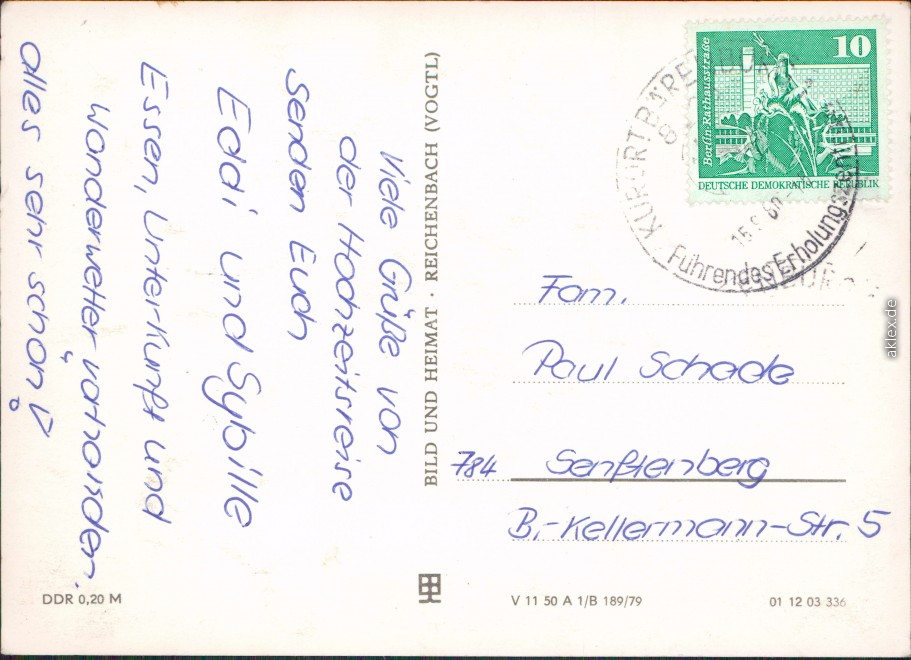 Viele Grüße von
der Hochzeitsreise
senden Euch
Edda und Sybille
Essen, Unterkunft und
Wanderwetter vorhanden.
alles sehr schön!
BILD UND HEIMAT · REICHENBACH (VOGTL)
10
Berlin-Rathausstraße
DEUTSCHE DEMOKRATISCHE REPUBLIK
KURORT BÄRENBURG
Führendes Erholung
Fam.
Paul Schade
784 Senftenberg
B.-Kellermann-Str. 5
DDR 0,20 M
V 11 50 A 1/B 189/79
01 12 03 336
aklex.de